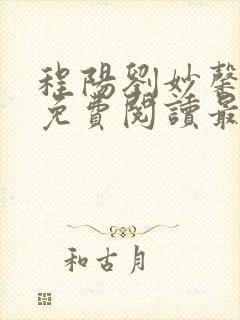 程陽劉妙馨
免費閱讀最
和古月